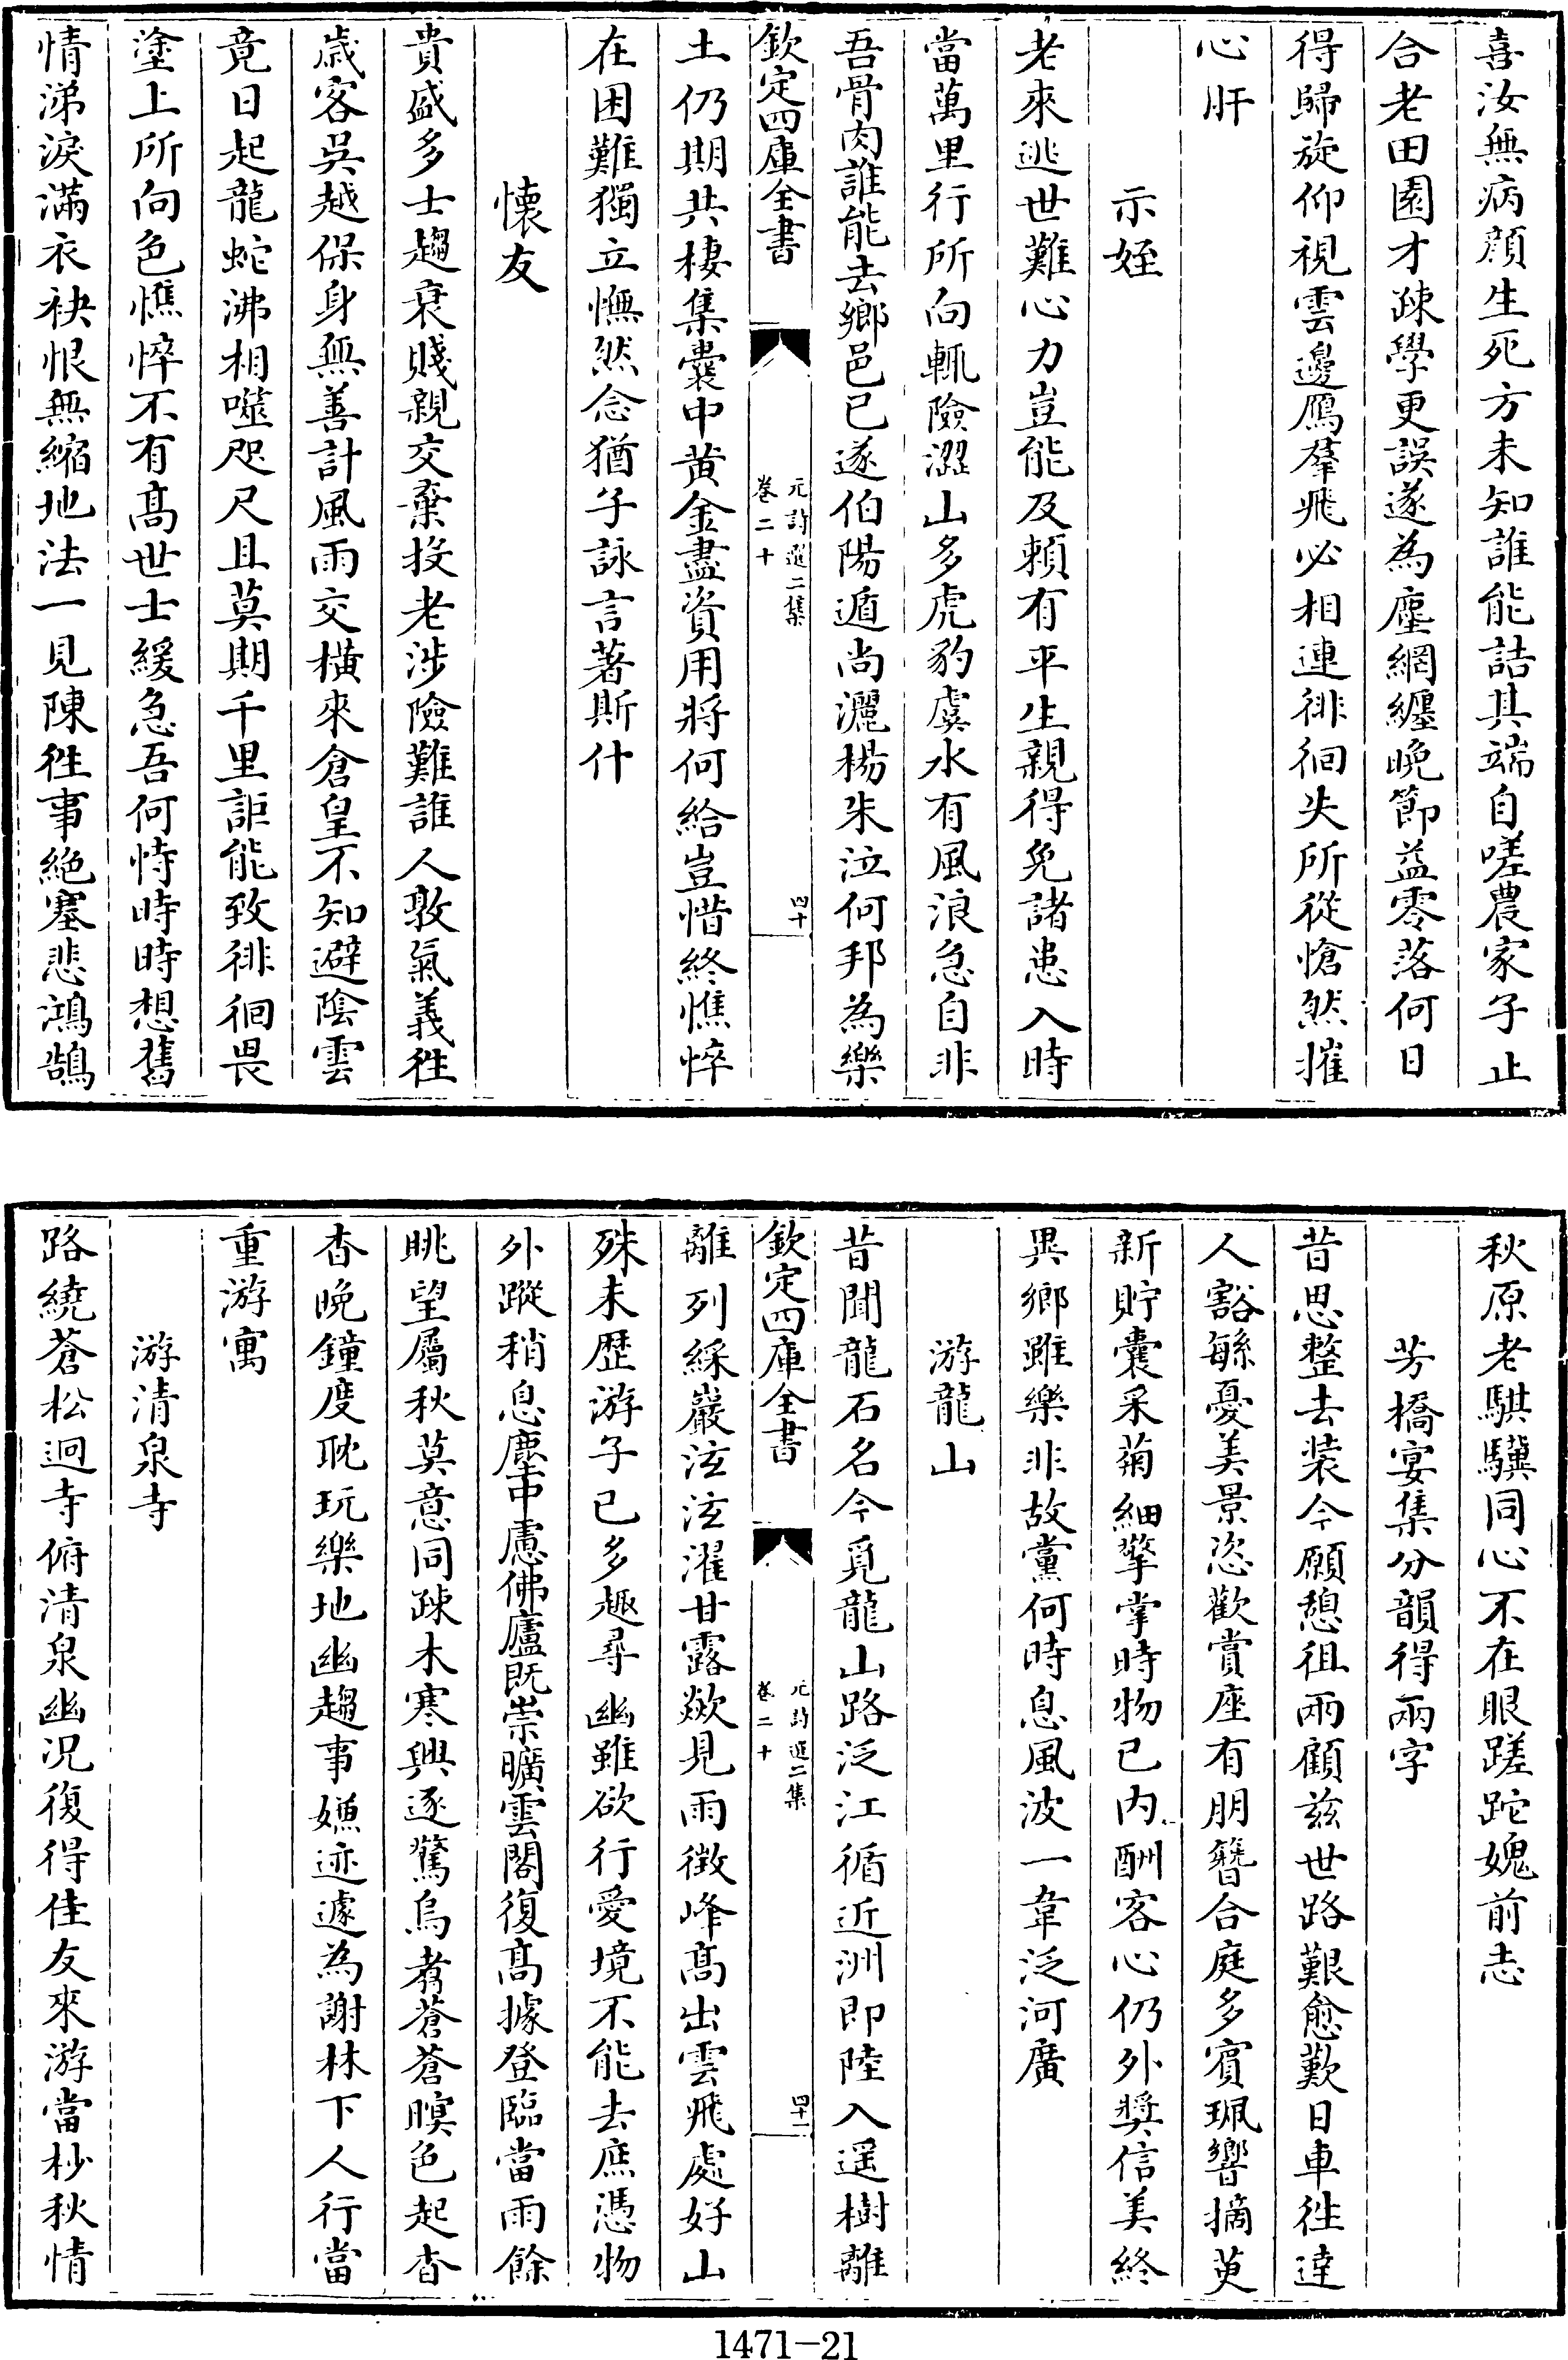 喜汝無病顔生死方未知誰能詰其端自嗟農家子止
合老田園才疎學更誤遂為塵網纏晩節益零落何日
得歸旋仰視雲邊鴈羣飛必相連徘徊失所從愴然摧
心肝
示姪
老來逃世難心力豈能及頼有平生親得免諸患入時
當萬里行所向輒險澀山多虎豹虞水有風浪急自非
吾骨肉誰能去鄉邑已遂伯陽遁尚灑楊朱泣何邦為樂
欽定四庫全書
元詩選二集
卷二十
四十
土仍期共棲集囊中黄金盡資用將何給豈惜終憔悴
在困難獨立憮然念猶子詠言著斯什
懐友
貴盛多士趨衰賤親交棄投老涉險難誰人敦氣義徃
歲客吳越保身無善計風雨交横來倉皇不知避陰雲
竟日起龍蛇沸相噬咫尺且莫期千里詎能致徘徊畏
塗上所向色憔悴不有髙世士緩急吾何恃時時想舊
情涕淚滿衣袂恨無縮地法一見陳徃事絶塞悲鴻鵠
秋原老騏驥同心不在眼蹉跎媿前志
芳橋宴集分韻得兩字
昔思整去装今願憩徂兩顧兹世路艱愈歎日車徃達
人豁緐憂美景恣歡賞座有朋簪合庭多賓珮響摘萸
新貯囊采菊細擎掌時物已内酬客心仍外奬信美終
異鄉雖樂非故黨何時息風波一葦泛河廣
游龍山
昔聞龍石名今覓龍山路泛江循近洲即陸入遥樹離
欽定四庫全書
元詩選二集
卷二十
四十一
離列綵巖泫泫濯甘露歘見雨徴峰髙出雲飛處好山
殊未歴游子已多趣尋幽雖欲行愛境不能去庶憑物
外蹤稍息塵中慮佛廬既崇曠雲閣復髙據登臨當雨餘
眺望屬秋莫意同疎木寒興逐驚烏翥蒼蒼暝色起杳
杳晩鐘度耽玩樂地幽趨事嫌迹遽為謝林下人行當
重游寓
游清泉寺
路繞蒼松迥寺俯清泉幽况復得佳友來游當杪秋情
1471-21